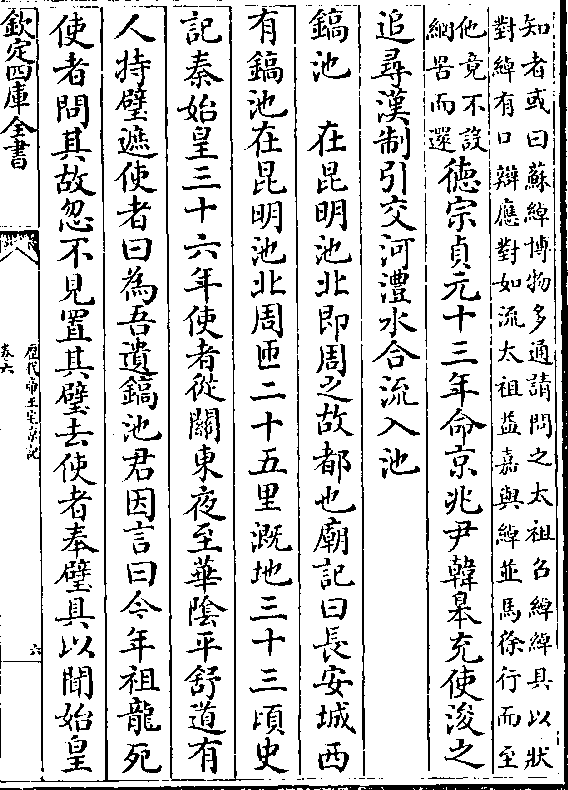 知者或曰蘇綽博物多通請問之太祖召綽綽具以狀
對綽有口辯應對如流太祖益嘉與綽並馬徐行而至
他竟不設
網罟而還德宗貞元十三年命京兆尹韓皋充使浚之
追尋漢制引交河灃水合流入池
鎬池　在昆明池北即周之故都也廟記曰長安城西
有鎬池在昆明池北周匝二十五里溉地三十三頃史
記秦始皇三十六年使者從關東夜至華陰平舒道有
人持璧遮使者曰為吾遺鎬池君因言曰今年祖龍死
使者問其故忽不見置其璧去使者奉璧具以聞始皇
欽定四庫全書
歷代帝王宅京記
卷六
六